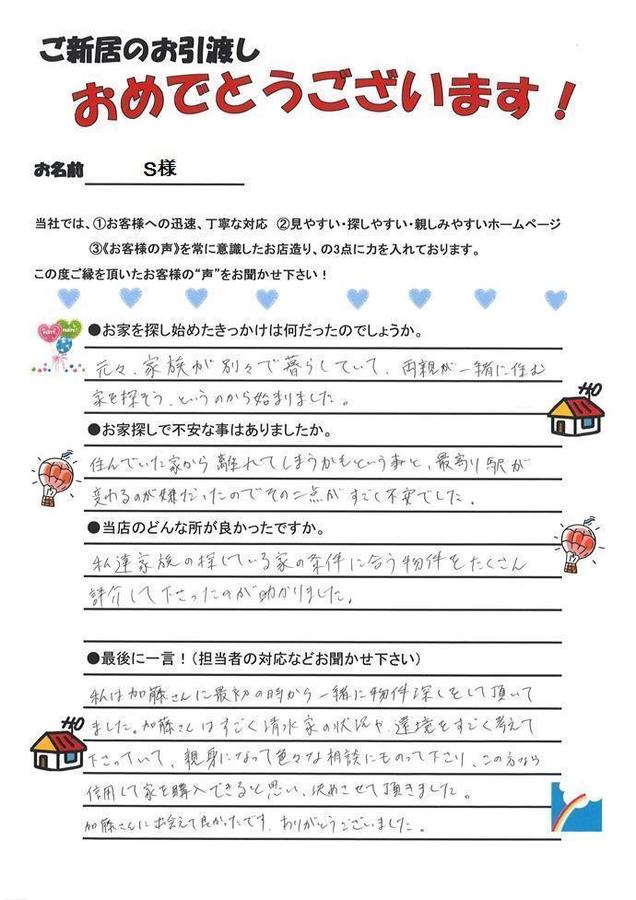 ご新居のお引渡し
おめでとうございます！
お名前 S様
当社では、①お客様への迅速、丁寧な対応 ②見やすい・探しやすい・親しみやすいホームページ
③《お客様の声》を常に意識したお店造り、の3点に力を入れております。
この度ご縁を頂いたお客様の“声”をお聞かせ下さい！
●お家を探し始めたきっかけは何だったのでしょうか。
元々、家族が別々で暮らしていて、両親が一緒に住む
家を探そう、というのから始まりました。
●お家探しで不安な事はありましたか。
住んでいた家から離れてしまうかもという事と、最寄り駅が
変わるのが嫌だったのでその二点がすごく不安でした。
●当店のどんな所が良かったですか。
私達家族の探している家の条件に合う物件をたくさん
紹介して下さったのが助かりました。
●最後に一言！（担当者の対応などお聞かせ下さい）
私は加藤さんに最初の時から一緒に物件探しをして頂いて
ました。加藤さんはすごく清水家の状況や、環境をすごく考えて
下さっていて、親身になって色々な相談にものって下さり、この方なら
信用して家を購入できると思い、決めさせて頂きました。
加藤さんに出会えて良かったです。ありがとうございました。